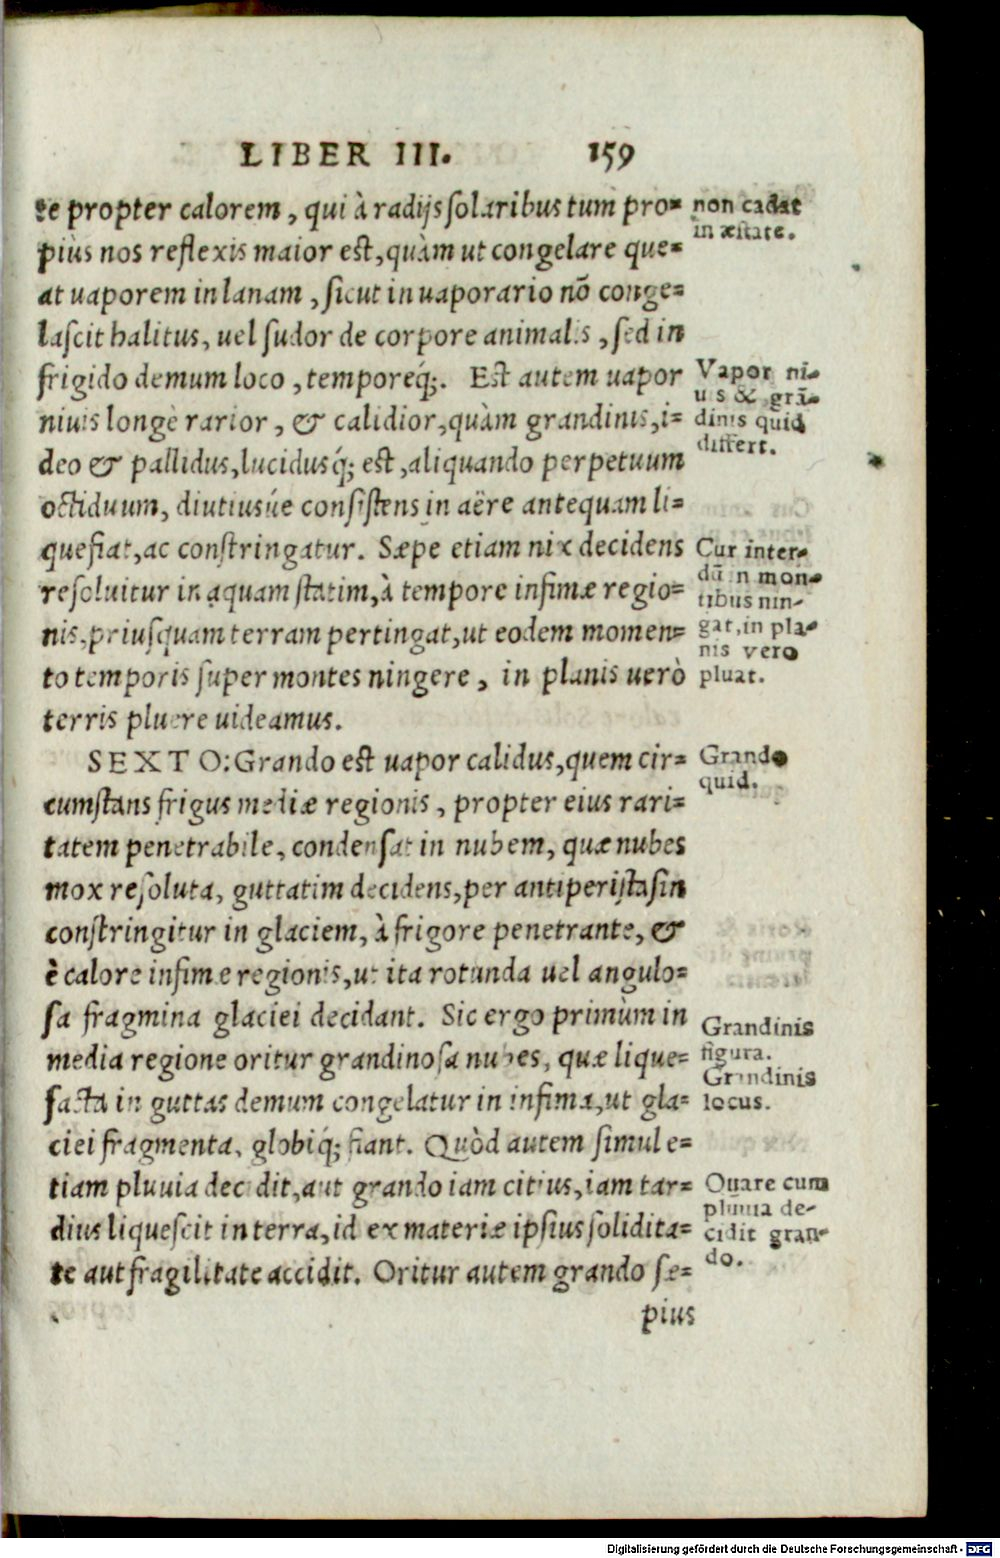 LIBER III. 159
te propter calorem, qui à radijs solaribus tum pro=
piùs nos reflexis maior est, quàm ut congelare que=
at uaporem in lanam, sicut in uaporario nō conge=
lascit halitus, uel sudor de corpore animalis, sed in
frigido demum loco, temporeq́;. Est autem uapor
niuis longè rarior, & calidior, quàm grandinis, i=
deo & pallidus, lucidusq́; est, aliquando perpetuum
octiduum, diutiusúe consistens in aëre antequam li=
quefiat, ac constringatur. Sæpe etiam nix decidens
resoluitur in aquam statim, à tempore infimæ regio=
nis, priusquam terram pertingat, ut eodem momen=
to temporis super montes ningere, in planis uerò
terris pluere uideamus.
SEXTO: Grando est uapor calidus, quem cir=
cumstans frigus mediæ regionis, propter eius rari=
tatem penetrabile, condensat in nubem, quæ nubes
mox resoluta, guttatim decidens, per antiperistasin
constringitur in glaciem, à frigore penetrante, &
è calore infimæ regionis, ut ita rotunda uel angulo=
sa fragmina glaciei decidant. Sic ergo primùm in
media regione oritur grandinosa nubes, quæ lique=
facta in guttas demum congelatur in infima, ut gla=
ciei fragmenta, globiq́; fiant. Quòd autem simul e=
tiam pluuia decidit, aut grando iam citius, iam tar=
dius liquescit in terra, id ex materiæ ipsius solidita=
te aut fragilitate accidit. Oritur autem grando sæ=
pius
non cadat
in æstate.
Vapor ni-
uis & grā-
dinis quid
differt.
Cur inter-
dū in mon-
tibus nin-
gat, in pla-
nis vero
pluat.
Grando
quid.
Grandinis
figura.
Grandinis
locus.
Quare cum
pluuia de-
cidit gran-
do.
Digitalisierung gefördert durch die Deutsche Forschungsgemeinschaft - DFG